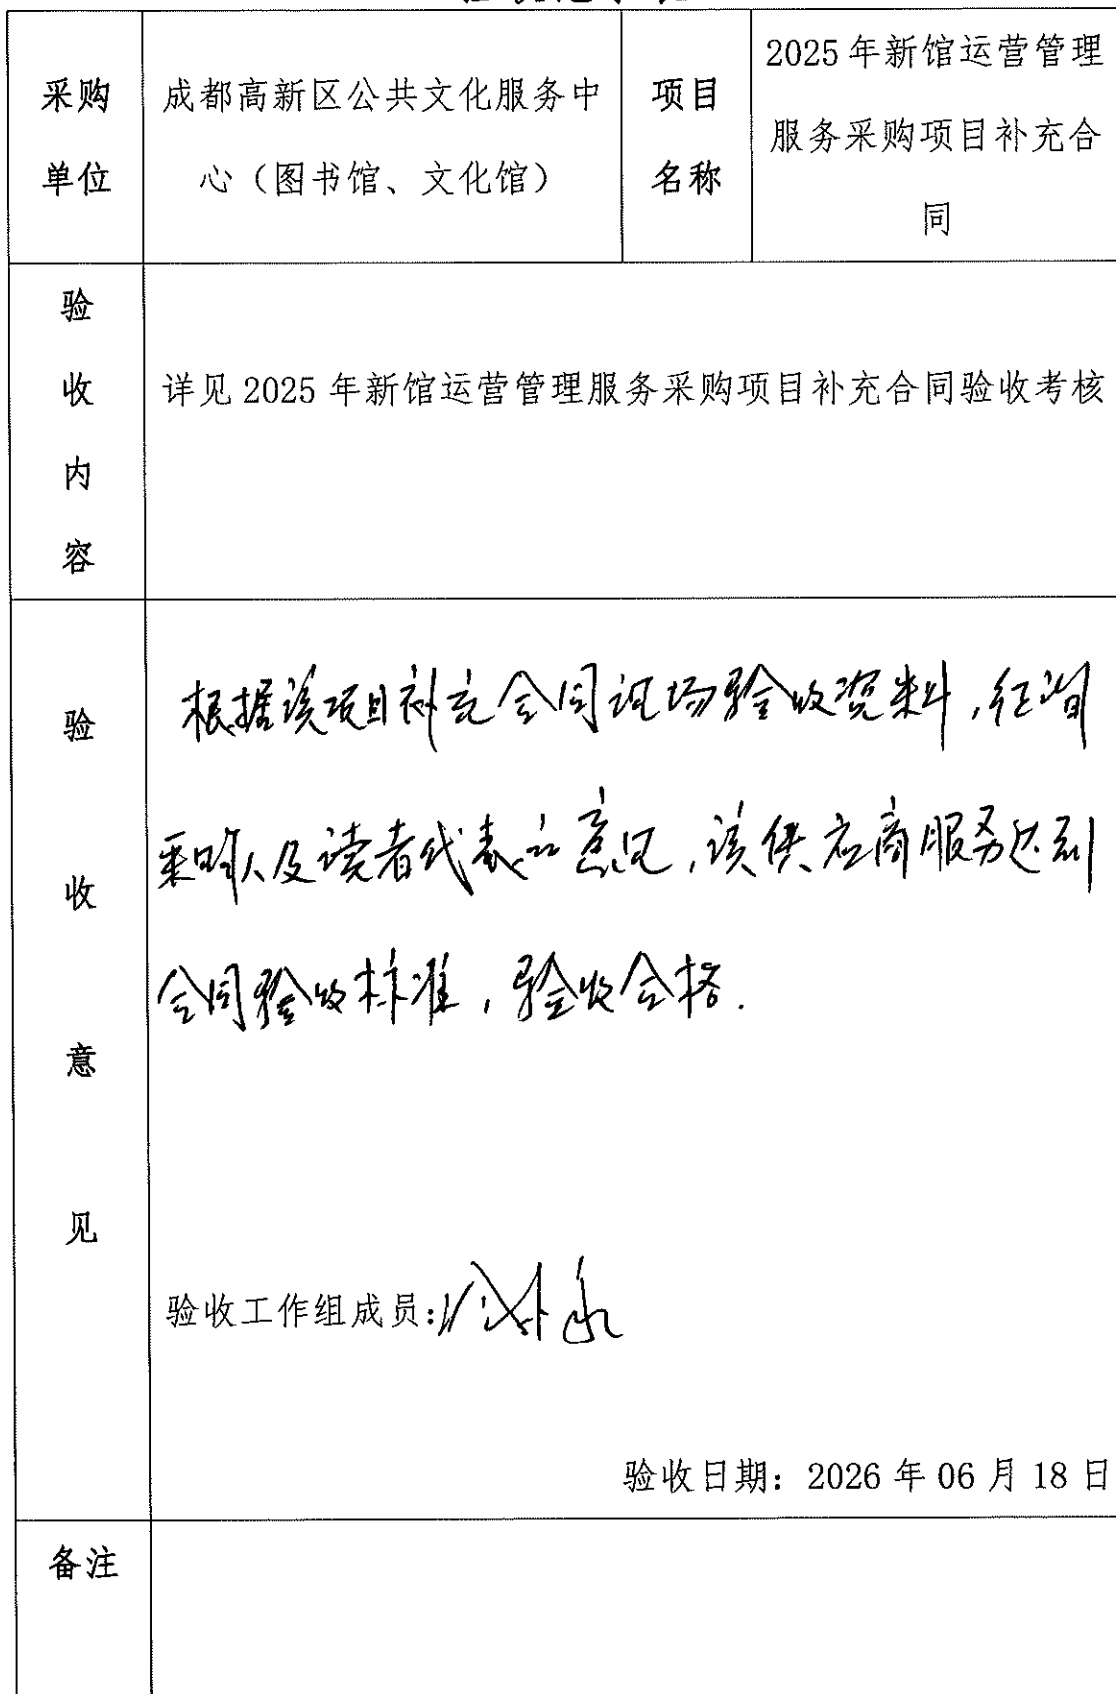 采购
单位
成都高新区公共文化服务中
心（图书馆、文化馆）
项目
名称
2025年新馆运营管理
服务采购项目补充合
同
验
收
内
容
详见 2025 年新馆运营管理服务采购项目补充合同验收考核
验
收
意
见
根据该项目补充合同现场验收资料，征询
采购人及读者代表的意见，该供应商服务达到
合同验收标准，验收合格.
验收工作组成员:
验收日期：2026 年 06 月 18 日
备注